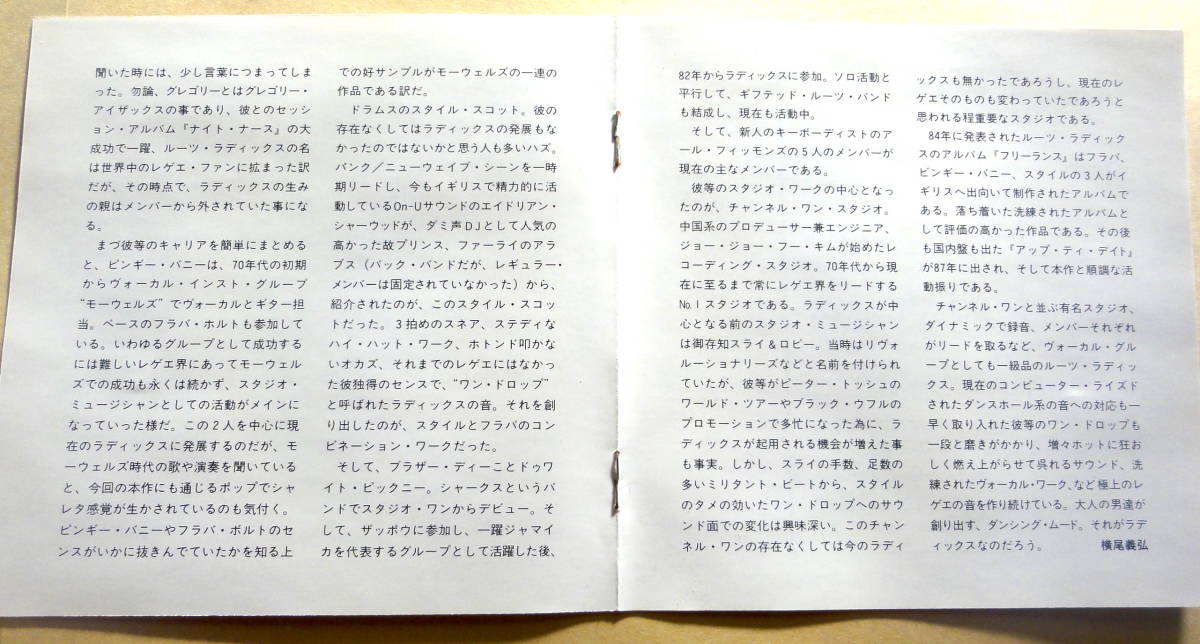 聞いた時には、少し言葉につまってしま
った。勿論、グレゴリーとはグレゴリー・
アイザックスの事であり、彼とのセッシ
ョン・アルバム『ナイト・ナース』の大
成功で一躍、ルーツ・ラディックスの名
は世界中のレゲエ・ファンに拡まった訳
だが、その時点で、ラディックスの生み
の親はメンバーから外されていた事にな
る。
まづ彼等のキャリアを簡単にまとめる
と、ビンギー・バニーは、70年代の初期
からヴォーカル・インスト・グループ
“モーウェルズ”でヴォーカルとギター担
当。ベースのフラバ・ホルトも参加して
いる。いわゆるグループとして成功する
には難しいレゲエ界にあってモーウェル
ズでの成功も永くは続かず、スタジオ・
ミュージシャンとしての活動がメインに
なっていった様だ。この2人を中心に現
在のラディックスに発展するのだが、モ
ーウェルズ時代の歌や演奏を聞いている
と、今回の本作にも通じるポップでシャ
レタ感覚が生かされているのも気付く。
ビンギー・バニーやフラバ・ボルトのセ
ンスがいかに抜きんでていたかを知る上
での好サンプルがモーウェルズの一連の
作品である訳だ。
ドラムスのスタイル・スコット。彼の
存在なくしてはラディックスの発展もな
かったのではないかと思う人も多いハズ。
パンク／ニューウェイブ・シーンを一時
期リードし、今もイギリスで精力的に活
動しているOn-Uサウンドのエイドリアン・
シャーウッドが、ダミ声DJとして人気の
高かった故プリンス、ファーライのアラ
ブス（バック・バンドだが、レギュラー・
メンバーは固定されていなかった）から、
紹介されたのが、このスタイル・スコッ
トだった。3拍めのスネア、ステディな
ハイ・ハット・ワーク、ホトンド叩かな
いオカズ、それまでのレゲエにはなかっ
た彼独得のセンスで、“ワン・ドロップ”
と呼ばれたラディックスの音。それを創
り出したのが、スタイルとフラバのコン
ビネーション・ワークだった。
そして、ブラザー・ディーことドゥワ
イト・ピックニー。シャークスというバ
ンドでスタジオ・ワンからデビュー。そ
して、ザッポウに参加し、一躍ジャマイ
カを代表するグループとして活躍した後、
82年からラディックスに参加。ソロ活動と
平行して、ギフテッド・ルーツ・バンド
も結成し、現在も活動中。
そして、新人のキーボーディストのア
ール・フィッモンズの5人のメンバーが
現在の主なメンバーである。
彼等のスタジオ・ワークの中心となっ
たのが、チャンネル・ワン・スタジオ。
中国系のプロデューサー兼エンジニア、
ジョー・ジョー・フー・キムが始めたレ
コーディング・スタジオ。70年代から現
在に至るまで常にレゲエ界をリードする
No.1スタジオである。ラディックスが中
心となる前のスタジオ・ミュージシャン
は御存知スライ＆ロビー。当時はリヴォ
ルーショナリーズなどと名前を付けられ
ていたが、彼等がピーター・トッシュの
ワールド・ツアーやブラック・ウフルの
プロモーションで多忙になった為に、ラ
ディックスが起用される機会が増えた事
も事実。しかし、スライの手数、足数の
多いミリタント・ビートから、スタイル
のタメの効いたワン・ドロップへのサウ
ンド面での変化は興味深い。このチャン
ネル・ワンの存在なくしては今のラディ
ックスも無かったであろうし、現在のレ
ゲエそのものも変わっていたであろうと
思われる程重要なスタジオである。
84年に発表されたルーツ・ラディック
スのアルバム『フリーランス』はフラバ、
ビンギー・バニー、スタイルの3人がイ
ギリスへ出向いて制作されたアルバムで
ある。落ち着いた洗練されたアルバムと
して評価の高かった作品である。その後
も国内盤も出た『アップ・ティ・デイト』
が87年に出され、そして本作と順調な活
動振りである。
チャンネル・ワンと並ぶ有名スタジオ、
ダイナミックで録音、メンバーそれぞれ
がリードを取るなど、ヴォーカル・グル
ープとしても一級品のルーツ・ラディッ
クス。現在のコンピューター・ライズド
されたダンスホール系の音への対応も一
早く取り入れた彼等のワン・ドロップも
一段と磨きがかかり、増々ホットに狂お
しく燃え上がらせて呉れるサウンド、洗
練されたヴォーカル・ワーク、など極上のレ
ゲエの音を作り続けている。大人の男達が
創り出す、ダンシング・ムード。それがラデ
ィックスなのだろう。 横尾義弘